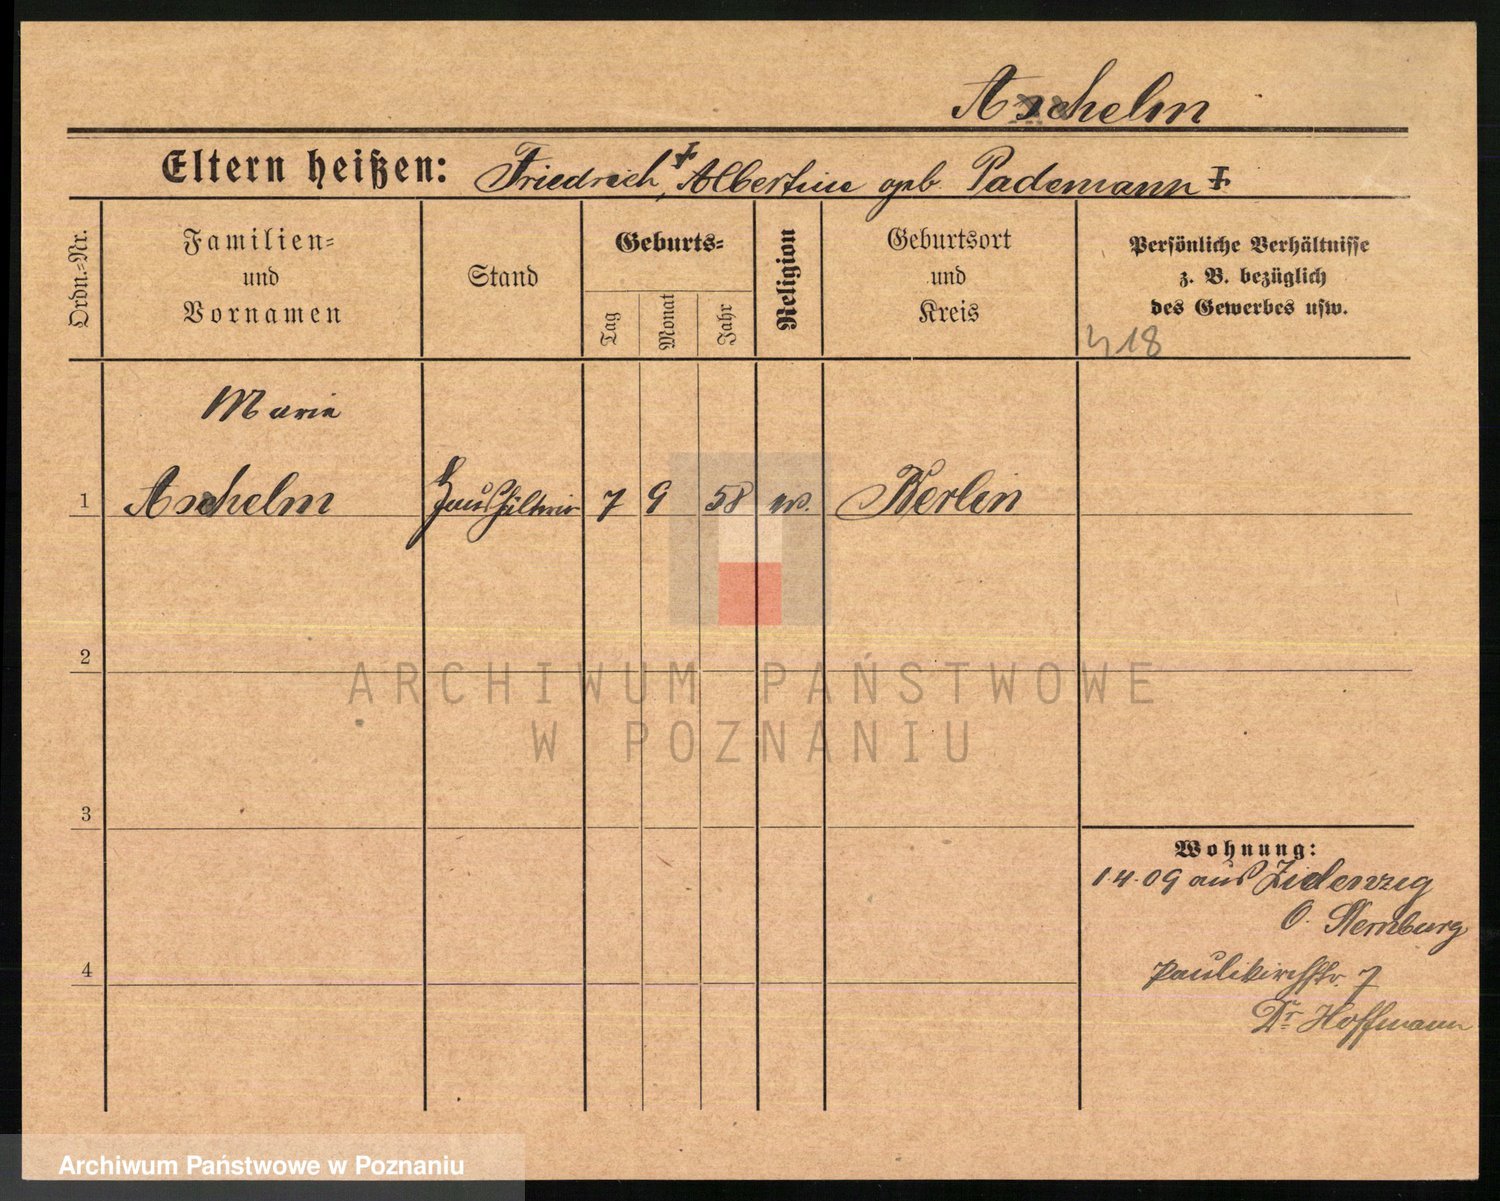 Aschelm
Eltern heißen: Friedrich ‡, Albertine geb. Pademann ‡
Ordn.=Nr.
Familien=
und
Vornamen
Stand
Geburts=
Tag
Monat
Jahr
Religion
Geburtsort
und
Kreis
Persönliche Verhältnisse
z. B. bezüglich
des Gewerbes usw.
418
Marie
1 Aschelm 7 9 58 ev. Berlin
2
3
4
Wohnung:
1.4.09 aus Zielenzig
O. Sternburg
Paulikirchstr. 7
Dr. Hoffmann
ARCHIWUM PAŃSTWOWE
W POZNANIU
Archiwum Państwowe w Poznaniu